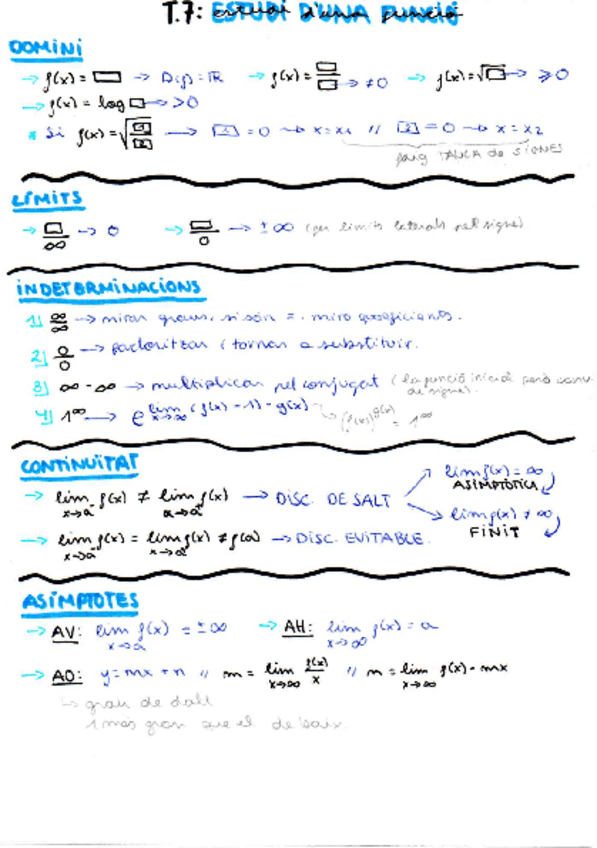 T.7: ESTUDI D'UNA FUNCIÓ
DOMINI
→ f(x) = □ → D(f) = ℝ → f(x) = □/□ → ≠ 0 → f(x) = √□ → ≥ 0
→ f(x) = log □ → > 0
* Si f(x) = √(□/□) → □ = 0 → x = x₁ // □ = 0 → x = x₂
faig TAULA de SIGNES
LÍMITS
→ □/∞ → 0 → □/0 → ± ∞ (fer límits laterals pel signe)
INDETERMINACIONS
1) ∞/∞ → mirar graus, si són = . miro coeficients.
2) 0/0 → factoritzar i tornar a substituir.
3) ∞ - ∞ → multiplicar pel conjugat (la funció inicial però canvi de signe).
4) 1^∞ → e^lim x→∞ (f(x) - 1) · g(x) → (f(x))^g(x) = 1^∞
CONTINUÏTAT
→ lim x→a⁻ f(x) ≠ lim x→a⁺ f(x) → DISC. DE SALT
lim f(x) = ∞
ASIMPTÒTICA
lim f(x) ≠ ∞
FINIT
→ lim x→a⁻ f(x) = lim x→a⁺ f(x) ≠ f(a) → DISC. EVITABLE.
ASÍMPTOTES
→ AV: lim x→a f(x) = ± ∞ → AH: lim x→∞ f(x) = a
→ AO: y = mx + n // m = lim x→∞ f(x)/x // n = lim x→∞ f(x) - mx
↳ grau de dalt
1 més gran que el de baix.